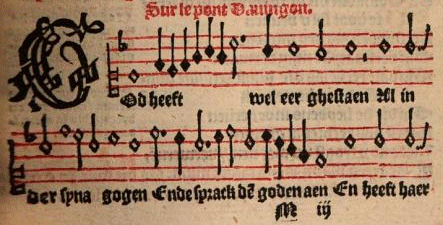 Sur le pont Dauingon.
GOd heeft wel eer ghestaen Al in
der syna gogen Ende sprack dē goden aen En heeft haer
M iij